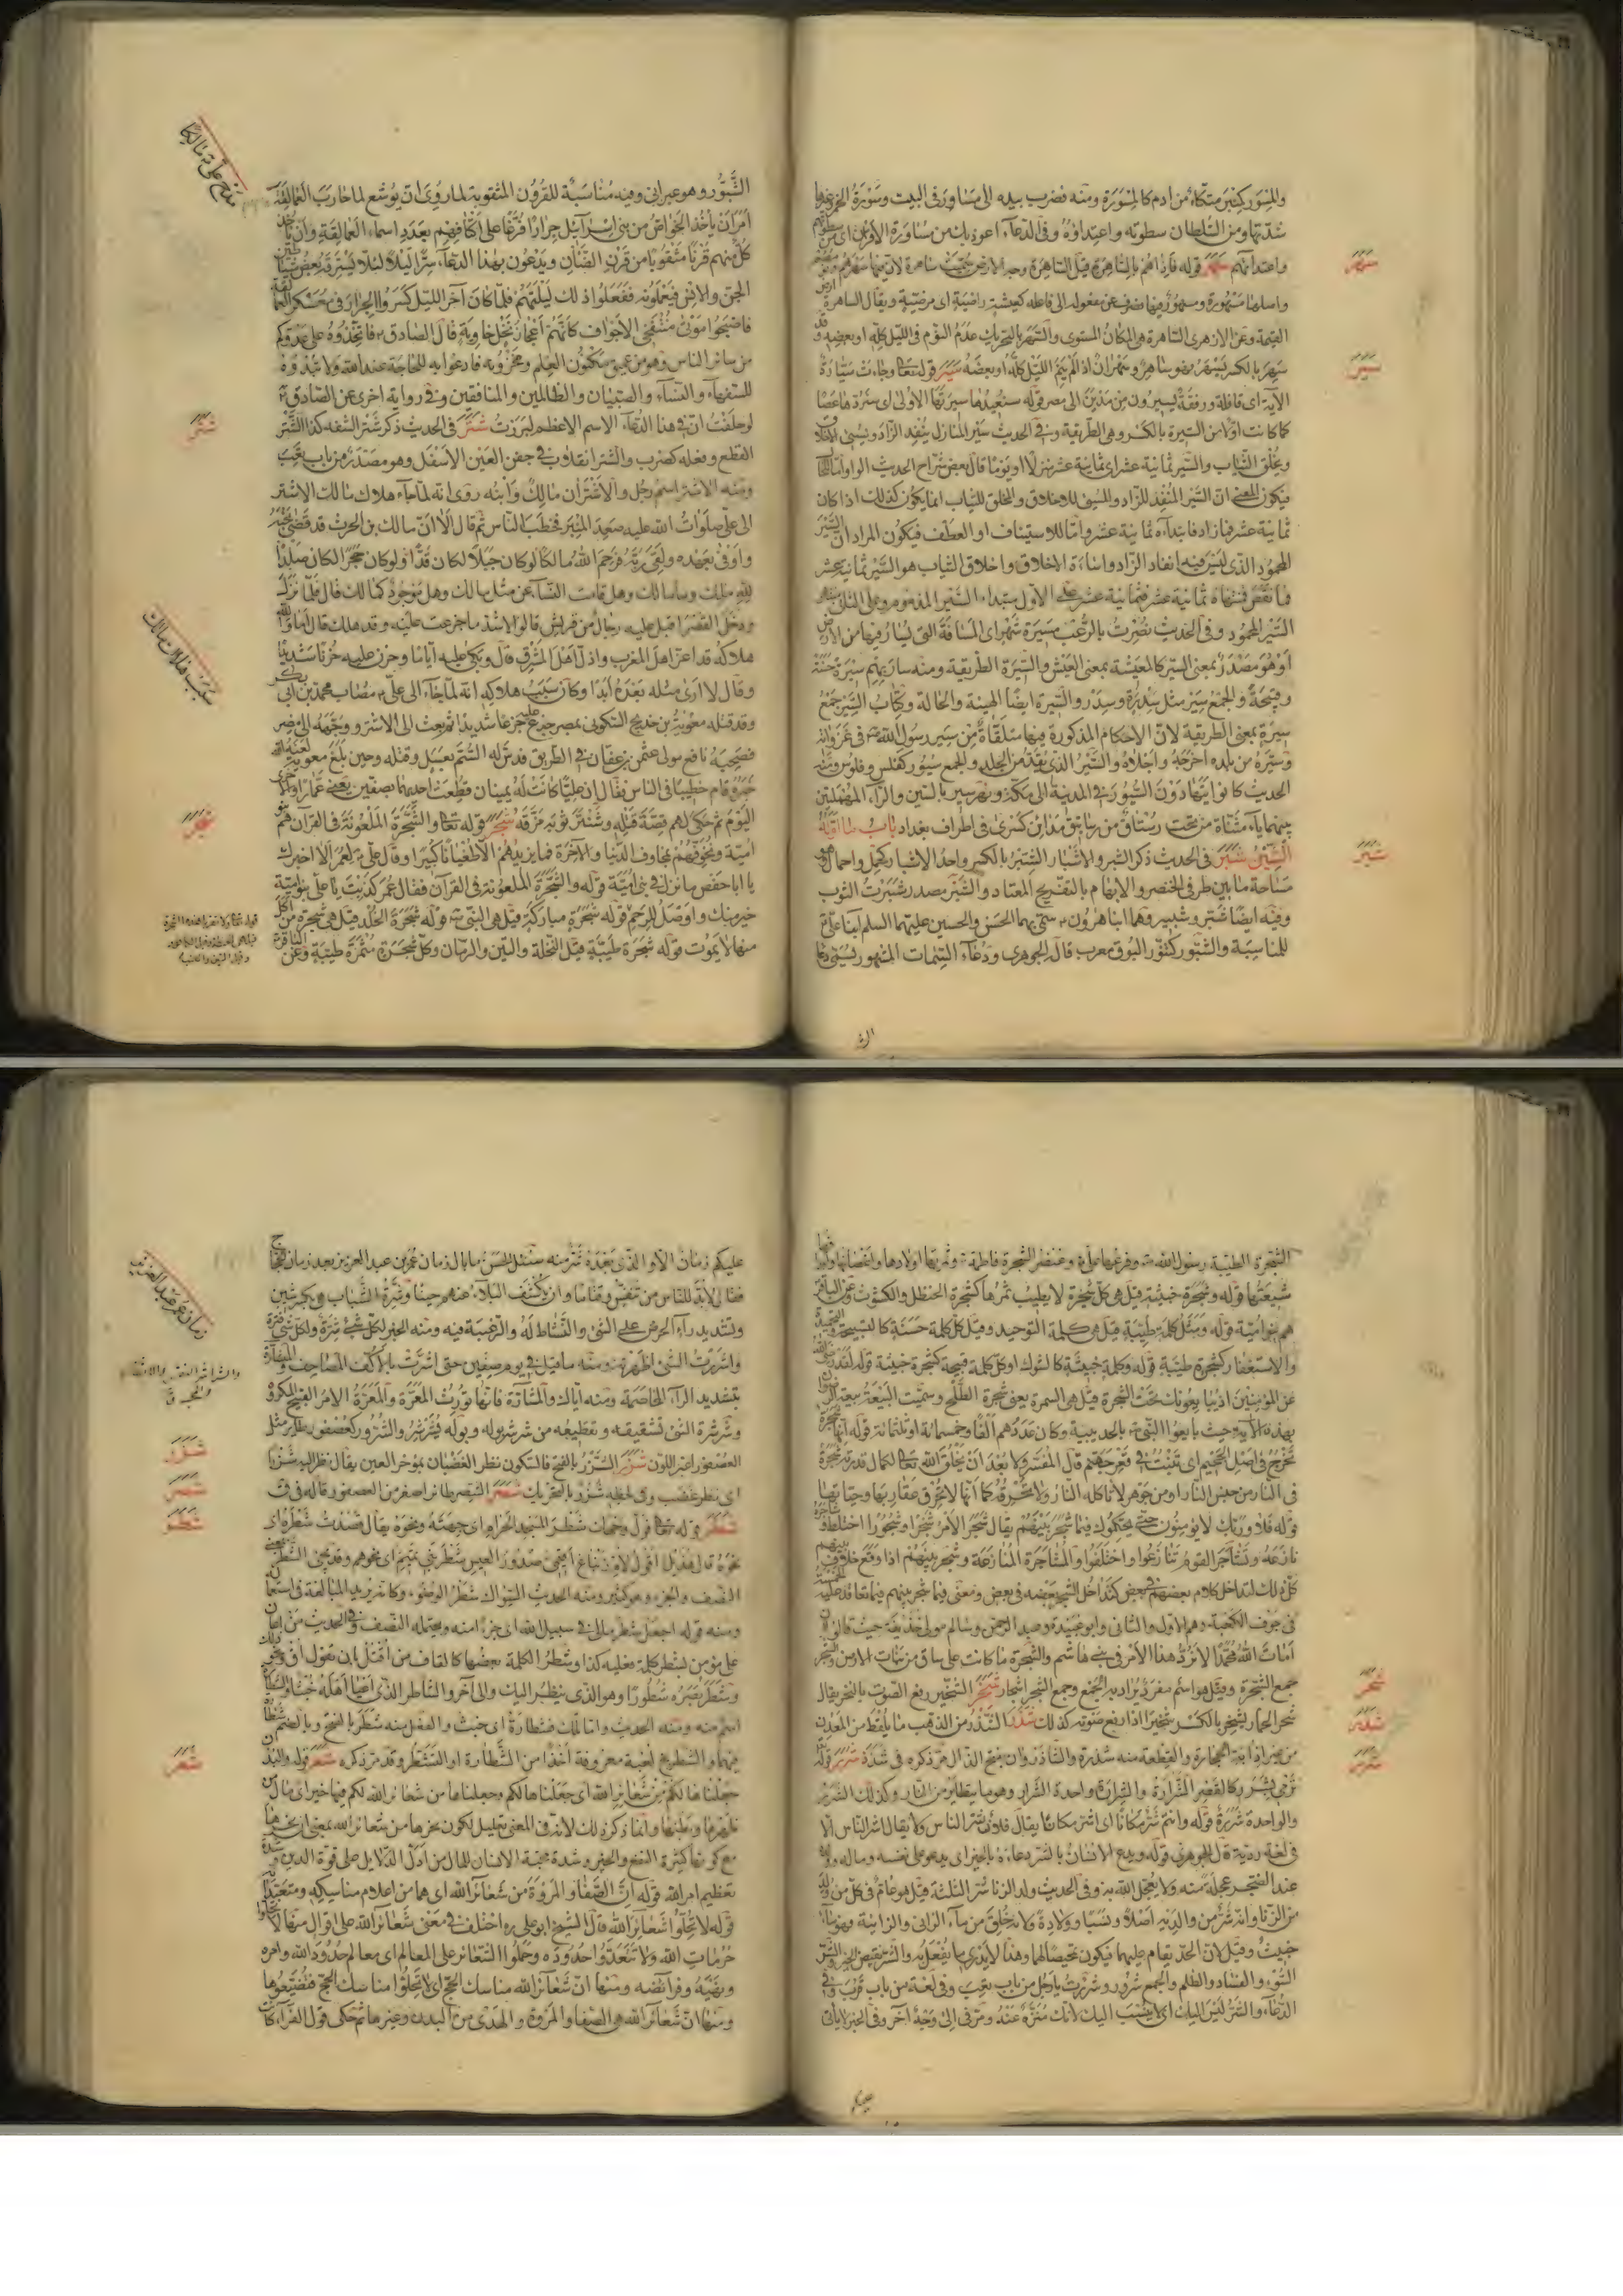 والمسور كمنبر متكاء من ادم كالمسورة ومنه فضرب بيده الى مساور في البيت وسورة الخمر وغيرها
شدتها ومن السلطان سطوته واعتداؤه وفي الدعاء اعوذ بك من مساورة الاقران اى من سطوتهم
واعتدائهم سهر قوله فاذا هم بالساهرة قيل الساهرة وجه الارض سميت ساهرة لان فيها سهرهم ونومهم
واصلها مسهورة ومسهور فيها فصرف عن مفعوله الى فاعله كعيشة راضية اى مرضية ويقال الساهرة ارض
القيمة وعن الازهرى الساهرة هي المكان المستوى والسهر بالتحريك عدم النوم في الليل كله او بعضه وقد
سهر بالكسر يسهر فهو ساهر وسهران اذا لم ينم الليل كله او بعضه سير قوله تعالى وجاءت سيارة
الاية اى قافلة ورفقة يسيرون من مدين الى مصر قوله سنعيدها سيرتها الاولى اى سنردها عصا
كما كانت اولا من السيرة بالكسر وهي الطريقة وفي الحديث سير المنازل ينفد الزاد ويسئ الاخلاق
ويخلق الثياب والسير ثمانية عشر اى ثمانية عشر منزلا او يوما قال بعض شراح الحديث الواو اما للحال
فيكون المعنى ان السير المنفد للزاد والمسئ للاخلاق والمخلق للثياب انما يكون كذلك اذا كان
ثمانية عشر فما زاد فابتداءه ثمانية عشر واما للاستيناف او العطف فيكون المراد ان السير
المحمود الذي ليس فيه انفاد الزاد واساءة الاخلاق واخلاق الثياب هو السير ثمانية عشر
فما نقص فمنتهاه ثمانية عشر فثمانية عشر على الاول مبتداء السير المذموم وعلى الثاني منتهى
السير المحمود وفي الحديث نصرت بالرعب مسيرة شهر اى المسافة التي يسار فيها من الارض
او هو مصدر بمعنى السير كالمعيشة بمعنى العيش والسيرة الطريقة ومنه سار بهم سيرة حسنة
وقبيحة والجمع سير مثل سدرة وسدر والسيرة ايضا الهيئة والحالة وكتاب السير جمع
سيرة بمعنى الطريقة لان الاحكام المذكورة فيها متلقاة من سير رسول الله ص في غزواته
وسيره من بلده اخرجه واجلاه والسير الذي يقد من الجلد والجمع سيور كفلس وفلوس ومنه
الحديث كانوا يتهادون السيور في المدينة الى مكة ونهر سير بالسين والراء المهملتين
بينهما ياء مثناة من تحت رستاق من رساتيق مداين كسرى في اطراف بغداد باب ما اوله
الشين شبر في الحديث ذكر الشبر والاشبار الشبر بالكسر واحد الاشبار كحمل واحمال وهو
مساحة ما بين طرفي الخنصر والابهام بالتفريج المعتاد والشبر مصدر شبرت الثوب
وفيه ايضا شبر وشبير وهما ابنا هرون ع سمي بهما الحسن والحسين عليهما السلم
للمناسبة والشبور كتنور البوق معرب قال الجوهري ودعاء السمات المشهور يسمى دعاء
سهر
سير
شبر
الشبور وهو عبراني وفيه مناسبة للقرون المثقوبة لما روى ان يوشع لما حارب العمالقة
امر ان ياخذ الخواص من بني اسرائيل جرارا فرغا على اكتافهم بعدد اسماء العمالقة وان ياخذ
كل منهم قرنا مثقوبا من قرن الضان ويدعون بهذا الدعاء سرا ليلا لئلا يسترقه بعض شياطين
الجن والانس فيعلموه ففعلوا ذلك ليلتهم فلما كان آخر الليل كسروا الجرار في معسكر العمالقة
فاصبحوا موتى منتفخى الاجواف كانهم اعجاز نخل خاوية قال الصادق ع فاتخذوه على عدوكم
من سائر الناس وهو من عميق مكنون العلم ومخزونه فادعوا به للحاجة عند الله ولا تبدوه
للسفهاء والنساء والصبيان والظالمين والمنافقين وفي رواية اخرى عن الصادق ع
لو حلفت ان في هذا الدعاء الاسم الاعظم لبررت شتر في الحديث ذكر شتر الشفه كذا الشتر
القطع وفعله كضرب والشتر انقلاب في جفن العين الاسفل وهو مصدر من باب تعب
ومنه الاشتر اسم رجل والاشتران مالك وابنه روى انه لما جاء هلاك مالك الاشتر
الى علي صلوات الله عليه صعد المنبر فخطب الناس ثم قال الا ان مالك بن الحرث قد قضى نحبه
واوفى بعهده ولقى ربه فرحم الله مالكا لو كان جبلا لكان فدا ولو كان حجرا لكان صلدا
لله مالك وما مالك وهل قامت النساء عن مثل مالك وهل موجود كمالك قال فلما نزل
ودخل القصر اقبل عليه رجال من قريش قالوا لاشد ما جزعت عليه وقد هلك قال اما والله
هلاكه قد اعز اهل المغرب واذل اهل المشرق قال وبكى عليه اياما وحزن عليه حزنا شديدا
وقال لا ارى مثله بعده ابدا وكان سبب هلاكه انه لما جاء الى علي ع مصاب محمد بن ابي بكر
وقد قتله معوية بن خديج السكوني بمصر جزع عليه جزعا شديدا ثم بعث الى الاشتر ووجهه الى مصر
فصحبه نافع مولى عثمن بن عفان في الطريق فدس له السم بعسل وقتله وحين بلغ معوية لعنه الله
خبره قام خطيبا في الناس فقال ان عليا كانت له يمينان قطعت احدهما بصفين يعنى عمارا والاخرى
اليوم ثم حكى لهم قصة قتله وشتر ثوبه مزقه شجر قوله تعالى والشجرة الملعونة في القران هم
امية ونخوفهم بمخاوف الدنيا والاخرة فما يزيدهم الا طغيانا كبيرا وقال علي ع لعمر الا اخبرك
يا ابا حفص ما نزل في بني امية قوله والشجرة الملعونة في القرآن فقال عمر كذبت يا علي بنو امية
خير منك واوصل للرحم قوله شجرة مباركة قيل هي النبي ص قوله شجرة الخلد قيل هي شجرة من اكل
منها لا يموت قوله شجرة طيبة قيل النخلة والتين والرمان وكل شجرة مثمرة طيبة وعن الباقر ع
سبب هلاك مالك
شتر
شجر
الشجرة الطيبة رسول الله ص وفرعها علي ع وعنصر الشجرة فاطمة ع وثمرتها اولادها واغصانها واوراقها
شيعتها قوله وشجرة خبيثة قيل هي كل شجرة لا يطيب ثمرها كشجرة الحنظل والكشوث وعن الباقر ع
هم بنو امية قوله ومثل كلمة طيبة قيل هي كلمة التوحيد وقيل كل كلمة حسنة كالتسبيحة والتحميدة
والاستغفار كشجرة طيبة قوله وكلمة خبيثة كالشرك او كل كلمة قبيحة كشجرة خبيثة قوله لقد رضى الله
عن المؤمنين اذ يبايعونك تحت الشجرة قيل هي السمرة يعني شجرة الطلح وسميت البيعة بيعة الرضوان
بهذه الاية حيث بايعوا النبي ص بالحديبية وكان عددهم الفا وخمسمائة او ثلثمائة قوله انها شجرة
تخرج في اصل الجحيم اى تنبت في قعر جهنم قال المفسر ولا بعد ان يخلق الله تعالى بكمال قدرته شجرة
في النار من جنس النار او من جوهر لا تاكله النار ولا تحرقه كما انها لا تحرق عقاربها وحياتها
قوله فلا وربك لا يؤمنون حتى يحكموك فيما شجر بينهم يقال شجر الامر شجرا وشجورا اختلط وشاجره
نازعه وتشاجر القوم تنازعوا واختلفوا والمشاجرة المنازعة وشجر بينهم اذا وقع خلاف بينهم
كل ذلك لتداخل كلام بعضهم في بعض كتداخل الشجر بعضه في بعض ومعنى فيما شجر بينهم فيما تعاقد عليه
في جوف الكعبة وهم الاول والثاني وابو عبيدة وعبد الرحمن وسالم مولى حذيفة حيث قالوا ان
امات الله محمدا لا نرد هذا الامر في بني هاشم والشجرة ما كانت على ساق من نبات الارض والشجر
جمع الشجرة وقيل هو اسم مفرد يراد به الجمع وجمع الشجر اشجار شخر الشخير رفع الصوت بالنخر يقال
شخر الحمار يشخر بالكسر شخيرا اذا رفع صوته كذلك شذر الشذر من الذهب ما يلقط من المعدن
من غير اذابة الحجارة والقطعة منه شذرة والشاذروان بفتح الذال مر ذكره في شذة شرر قوله
ترمى بشرر كالقصر الشرارة والشرارة واحدة الشرار وهو ما يتطاير من النار وكذلك الشرر
والواحدة شررة قوله وانتم شر مكانا اى اشر مكانا يقال فلان شر الناس ولا يقال اشر الناس الا
في لغة ردية قال الجوهري قوله ويدع الانسان بالشر دعاءه بالخير اى يدعو على نفسه وماله وولده
عند الضجر عجلة منه ولا يعجل الله به وفي الحديث ولد الزنا شر الثلثة قيل هو عام في كل من ولد
من الزنا وانه شر من والديه اصلا ونسبا وولادة ولانه خلق من ماء الزاني والزانية فهو ماء
خبيث وقيل لان الحد يقام عليهما فيكون تمحيصا لهما وهذا لا يدرى ما يفعل به والشر نقيض الخير والشر
السوء والفساد والظلم والجمع شرور وشررت يا رجل من باب تعب وفي لغة من باب قرب وفي
الدعاء والشر ليس اليك اى لا ينسب اليك لانك منزه عنه ومر في الى وجه آخر وفي الخبر لا ياتي
شخر
شذر
شرر
عليكم زمان الا والذي بعده شر منه سئل الحسن ما بال زمان عمر بن عبد العزيز بعد زمان الحجاج
فقال لا بد للناس من تنفيس وقتا ما وان يكشف البلاء عنهم حينا وشرة الشباب هي بكسر شين
وتشديد راء الحرص على الشئ والنشاط له والرغبة فيه ومنه الخبر لكل شئ شرة ولكل شرة فترة
واشررت الشئ اظهرته ومنه ما قيل في يوم صفين حتى اشرت بالاكف المصاحف والمشارة
بتشديد الراء المخاصمة ومنه اياك والمشارة فانها تورث المعرة والمعرة الامر القبيح المكروه
وشرشرة الشئ تشقيقه وتقطيعه من شرشر بوله وبوله يشرشر والشرشور كعصفور طائر مثل
العصفور اغبر اللون شزر الشزر بالفتح فالسكون نظر الغضبان بمؤخر العين يقال نظر اليه شزرا
اى نظر غضب وفي لحظه شزر بالتحريك شصر الشصر طائر اصغر من العصفور قاله في ق
شطر قوله تعالى فول وجهك شطر المسجد الحرام اى جهته ونحوه يقال قصدت شطره اى
نحوه قال هذيل اقول لام زنباع اقيمى صدور العيس شطر بني تميم اى نحوهم وقد يجئ الشطر بمعنى
النصف والجزء وهو كثير ومنه الحديث السواك شطر الوضوء وكانه يريد المبالغة في استعماله
ومنه قوله اجعل شطر مالي في سبيل الله اى جزءا منه ويحتمل النصف وفي الحديث من اعان
على مؤمن بشطر كلمة فعليه كذا وشطر الكلمة بعضها كالقاف من اقتل بان تقول اق وشطر
وشطر بصره شطورا وهو الذي ينظر اليك والى آخر والشاطر الذي اعيا اهله خبثا
شعر قوله والبدن
جعلناها لكم من شعائر الله اى جعلناها لكم وجعلناها من شعائر الله لكم فيها خير اى مال من
تعظيم امر الله قوله ان الصفا والمروة من شعائر الله اى هما من اعلام مناسكه ومتعبداته
قوله لا تحلوا شعائر الله قال الشيخ ابو علي ره اختلف في معنى شعائر الله على اقوال منها لا تحلوا
حرمات الله ولا تتعدوا حدوده وحملوا الشعائر على المعالم اى معالم حدود الله وامره
ونهيه وفرائضه ومنها ان شعائر الله مناسك الحج اى لا تحلوا مناسك الحج فتضيعوها
ومنها ان شعائر الله هي الصفا والمروة والهدى من البدن وغيرها ثم حكى قول الفراء كانت
زمان عمر بن عبد العزيز
شزر
شصر
شطر
شعر